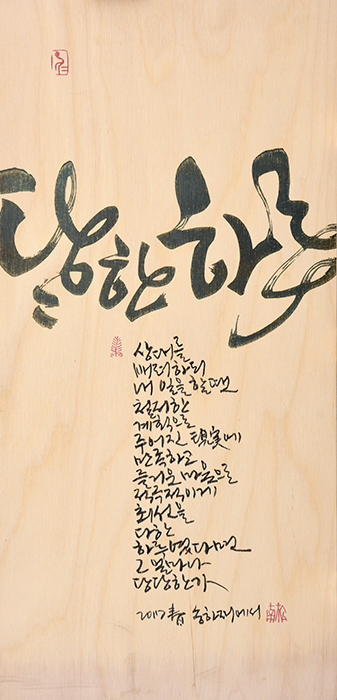 당당한 하루
상대를
배려하되
내 일을 할 땐
철저한
계획으로
주어진 現実에
만족하고
즐거운 마음으로
적극적이게
최선을
다한
하루였다면
그 얼마나
당당한가
2017 春 송하재에서